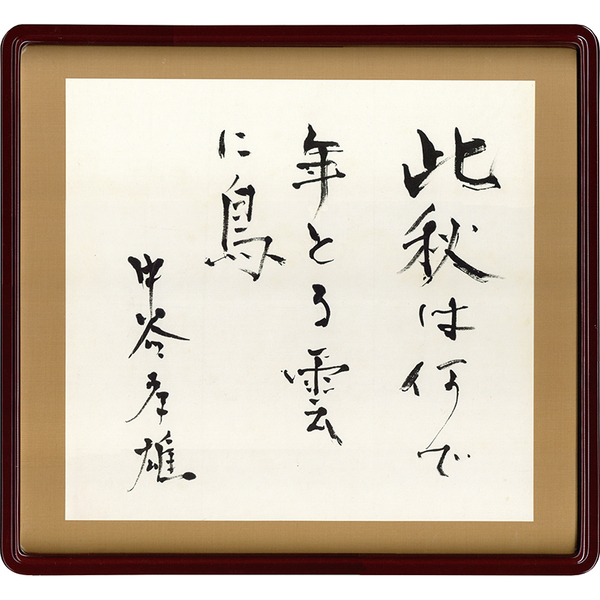 此秋は何で
年とる雲
に鳥
中谷孝雄